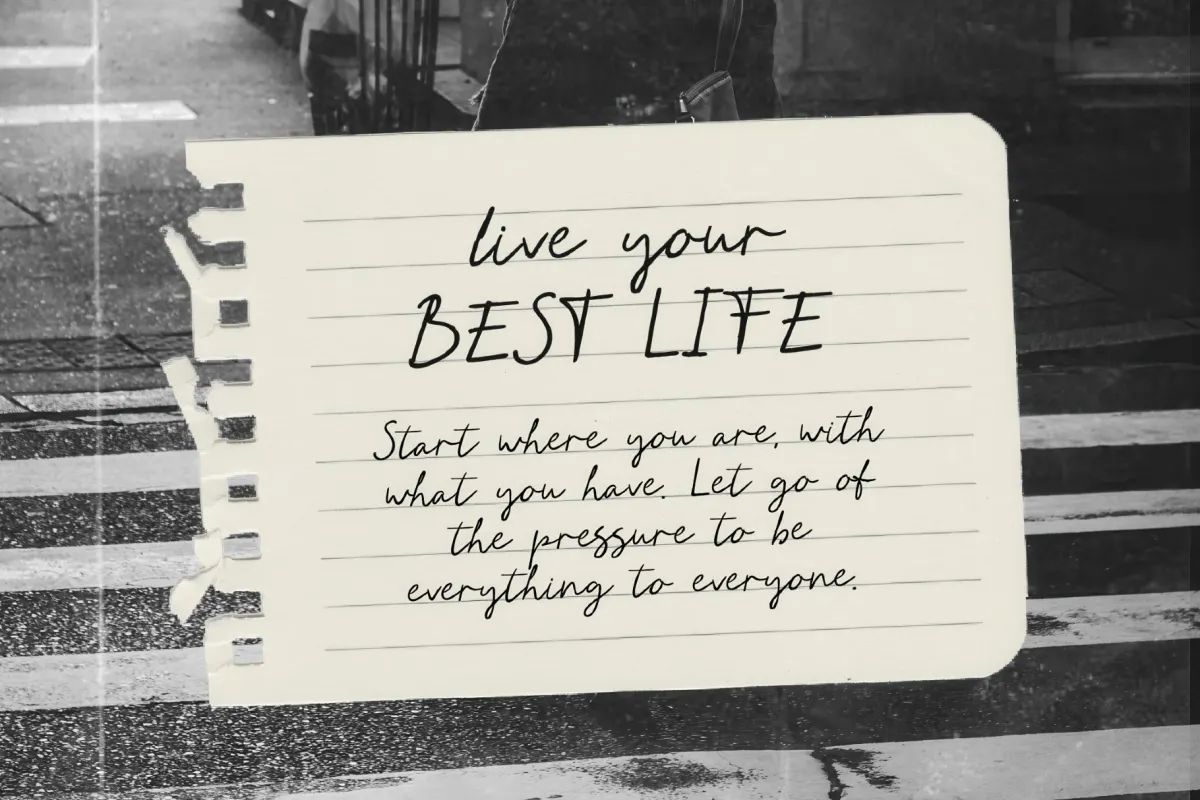 live your
BEST LIFE
Start where you are, with
what you have. Let go of
the pressure to be
everything to everyone.